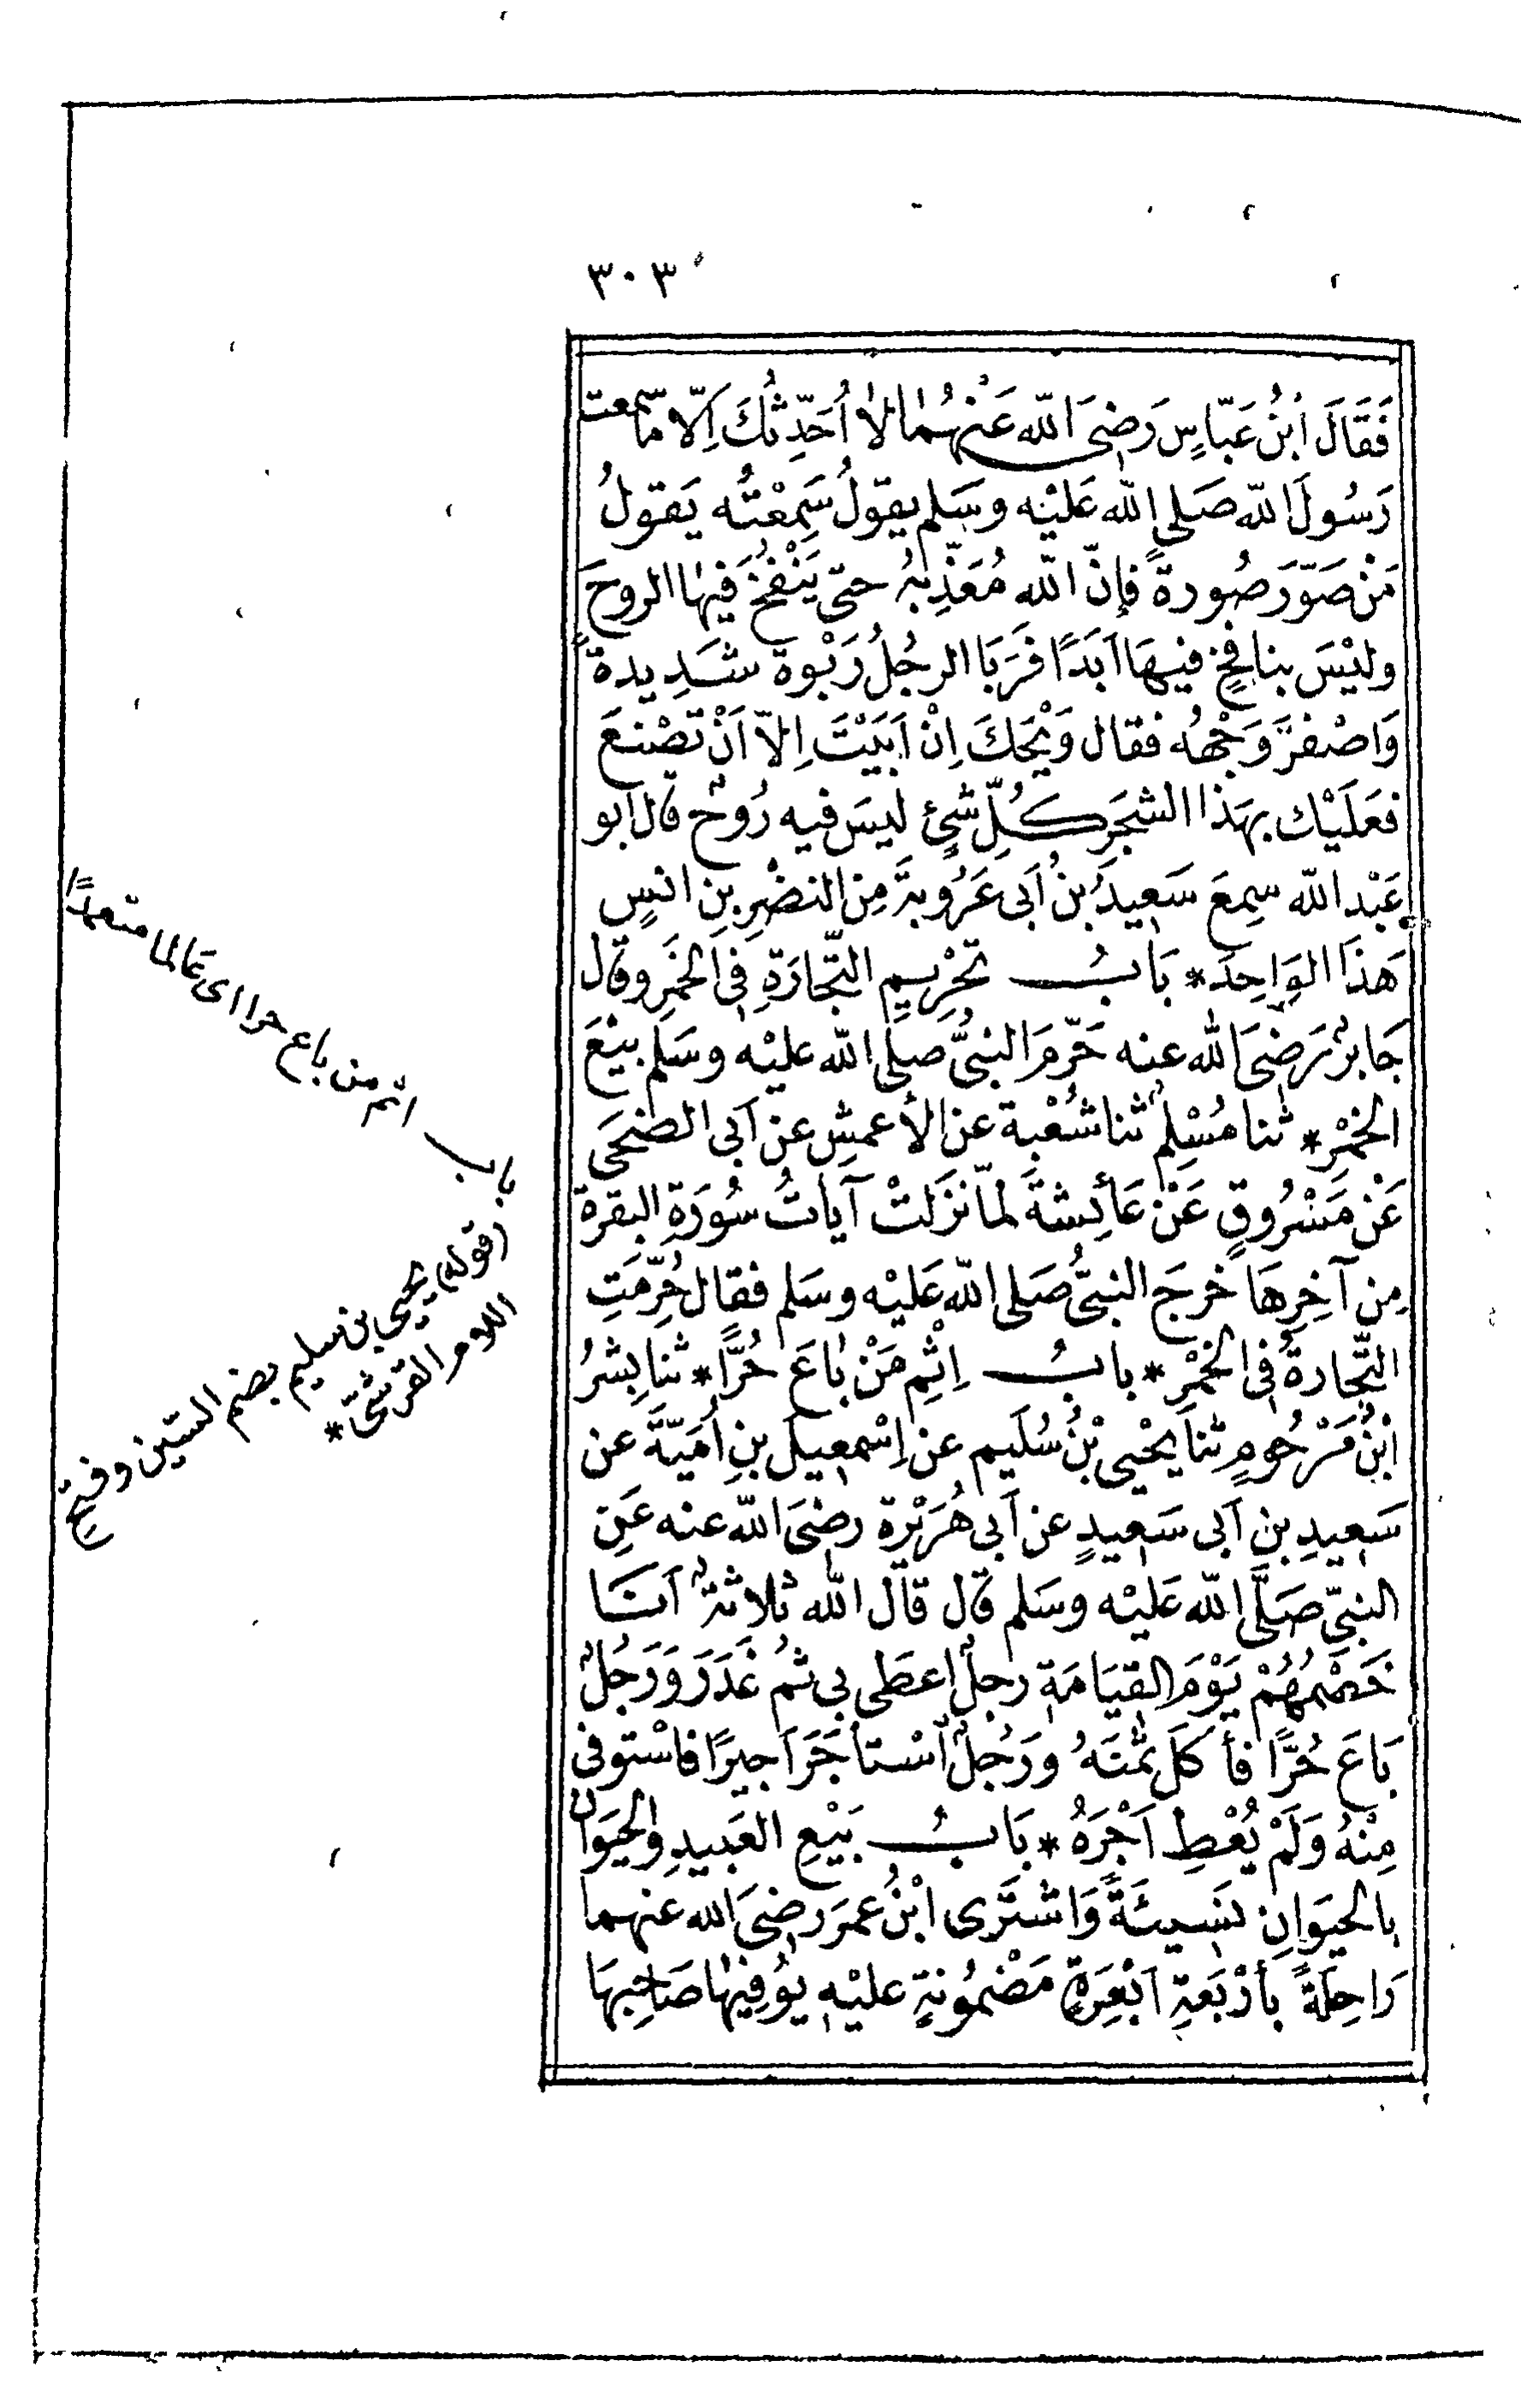 ٣٠٣
فَقَالَ ابْنُ عَبَّاسٍ رَضِىَ اللّٰه عَنْهُمَا لاَ أُحَدِّثُكَ اِلّا مَا سمعت
رَسُولَ اللّٰه صَلى اللّٰه عَليْه وسَلم يقولُ سَمِعْتُه يَقولُ
مَنْ صَوّرَ صُورةً فإنّ اللّٰه مُعَذِّبهُ حتى يَنْفُخَ فيها الروحَ
وليْسَ بنافخٍ فيهَا اَبَدًا فَرَبَا الرجُلُ رَبْوةً شَدِيدةً
وَاصْفرَّ وَجْهُه فقال وَيْحَكَ اِنْ اَبَيْتَ اِلاّ اَنْ تَصْنعَ
فعَلَيْك بهَذا الشجَرِ كُلِّ شىْءٍ ليسَ فيه رُوحٌ قال ابو
عَبْد اللّٰه سمِعَ سَعِيدُ بنُ اَبى عَرُوبةَ مِن النضْرِ بنِ انسٍ
هَذَا الوَاحِدَ * بَابُ تحْرِيمِ التّجَارَةِ فى الخمَرِ وقال
جَابرٌ رَضىَ اللّٰه عنه حَرّمَ النبىُّ صلى اللّٰه عليْه وسَلم بيْعَ
الخمْرِ * ثنا مُسْلِمٌ ثنا شُعْبة عن الأعمشِ عن اَبى الضحَى
عَنْ مَسْرُوقٍ عَنْ عَائِشةَ لمّا نزَلتْ آياتُ سُورَةِ البقرة
مِن آخِرِهَا خرجَ النبىُّ صَلى اللّٰه عَليْه وسَلم فقال حُرّمَتِ
التّجارةُ فى الخمْرِ * بابُ اِثمِ مَنْ بَاعَ حُرًّا * ثنَا بِشرُ
ابْنُ مَرْحُومٍ ثنَا يحْيى بْنُ سُلَيم عن اِسْمعِيلَ بنِ اُمَيّةَ عن
سَعيدِ بنِ اَبى سَعيدٍ عن اَبى هُرَيْرة رضىَ اللّٰه عنه عَنِ
النبىّ صَلَّى اللّٰه عَليْه وسَلم قال قال اللّٰه ثلاثةٌ اَنَا
خَصْمُهُمْ يَوْمَ القِيَامَةِ رجلٌ اعطَى بى ثمُ غَدَرَ وَرَجُلٌ
بَاعَ حُرًّا فأكلَ ثمْنَهُ ورَجُلٌ اسْتأجَرَ اَجيرًا فاسْتوفى
مِنْهُ وَلَمْ يُعْطِ اَجْرَهُ * بَابُ بَيْعِ العَبيدِ والحيَوانِ
بالحيوَانِ نَسِيئَةً وَاشْتَرى ابْنُ عمرَ رضىَ اللّٰه عنهما
رَاحِلةً بأرْبَعةِ اَبْعِرَةٍ مَضْمُونةٍ عليْه يوُفِيهَا صَاحِبهَا
باب اثم من باع حرا اى عَالما متعمدًا
(قوله) يحيى بن سليم بضم السين وفتح
اللام القرشىّ *